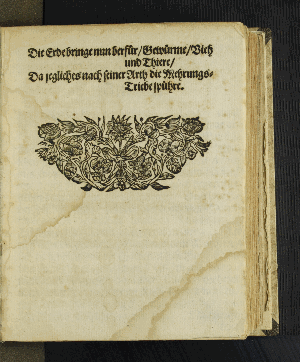 Die Erde bringe nun herfür/Gewürme/Vieh
und Thiere/
Da jegliches nach seiner Arth die Mehrungs-
Triebe spühre.